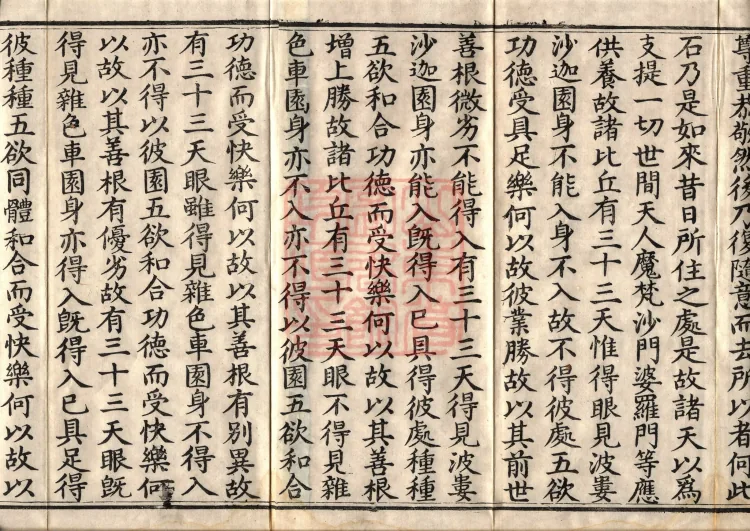 尊重恭敬然後乃復隨意而去所以者何此
石乃是如來昔日所住之處是故諸天以爲
支提一切世間天人魔梵沙門婆羅門等應
供養故諸比丘有三十三天惟得眼見波婁
沙迦園身不能入身不入故不得彼處五欲
功德受具足樂何以故彼業勝故以其前世
善根微劣不能得入有三十三天得見波婁
沙迦園身亦能入旣得入已具得彼處種種
五欲和合功德而受快樂何以故以其善根
增上勝故諸比丘有三十三天眼不得見雜
色車園身亦不入亦不得以彼園五欲和合
功德而受快樂何以故以其善根有別異故
有三十三天眼雖得見雜色車園身不得入
亦不得以彼園五欲和合功德而受快樂何
以故以其善根有優劣故有三十三天眼旣
得見雜色車園身亦得入旣得入已具足得
彼種種五欲同體和合而受快樂何以故以